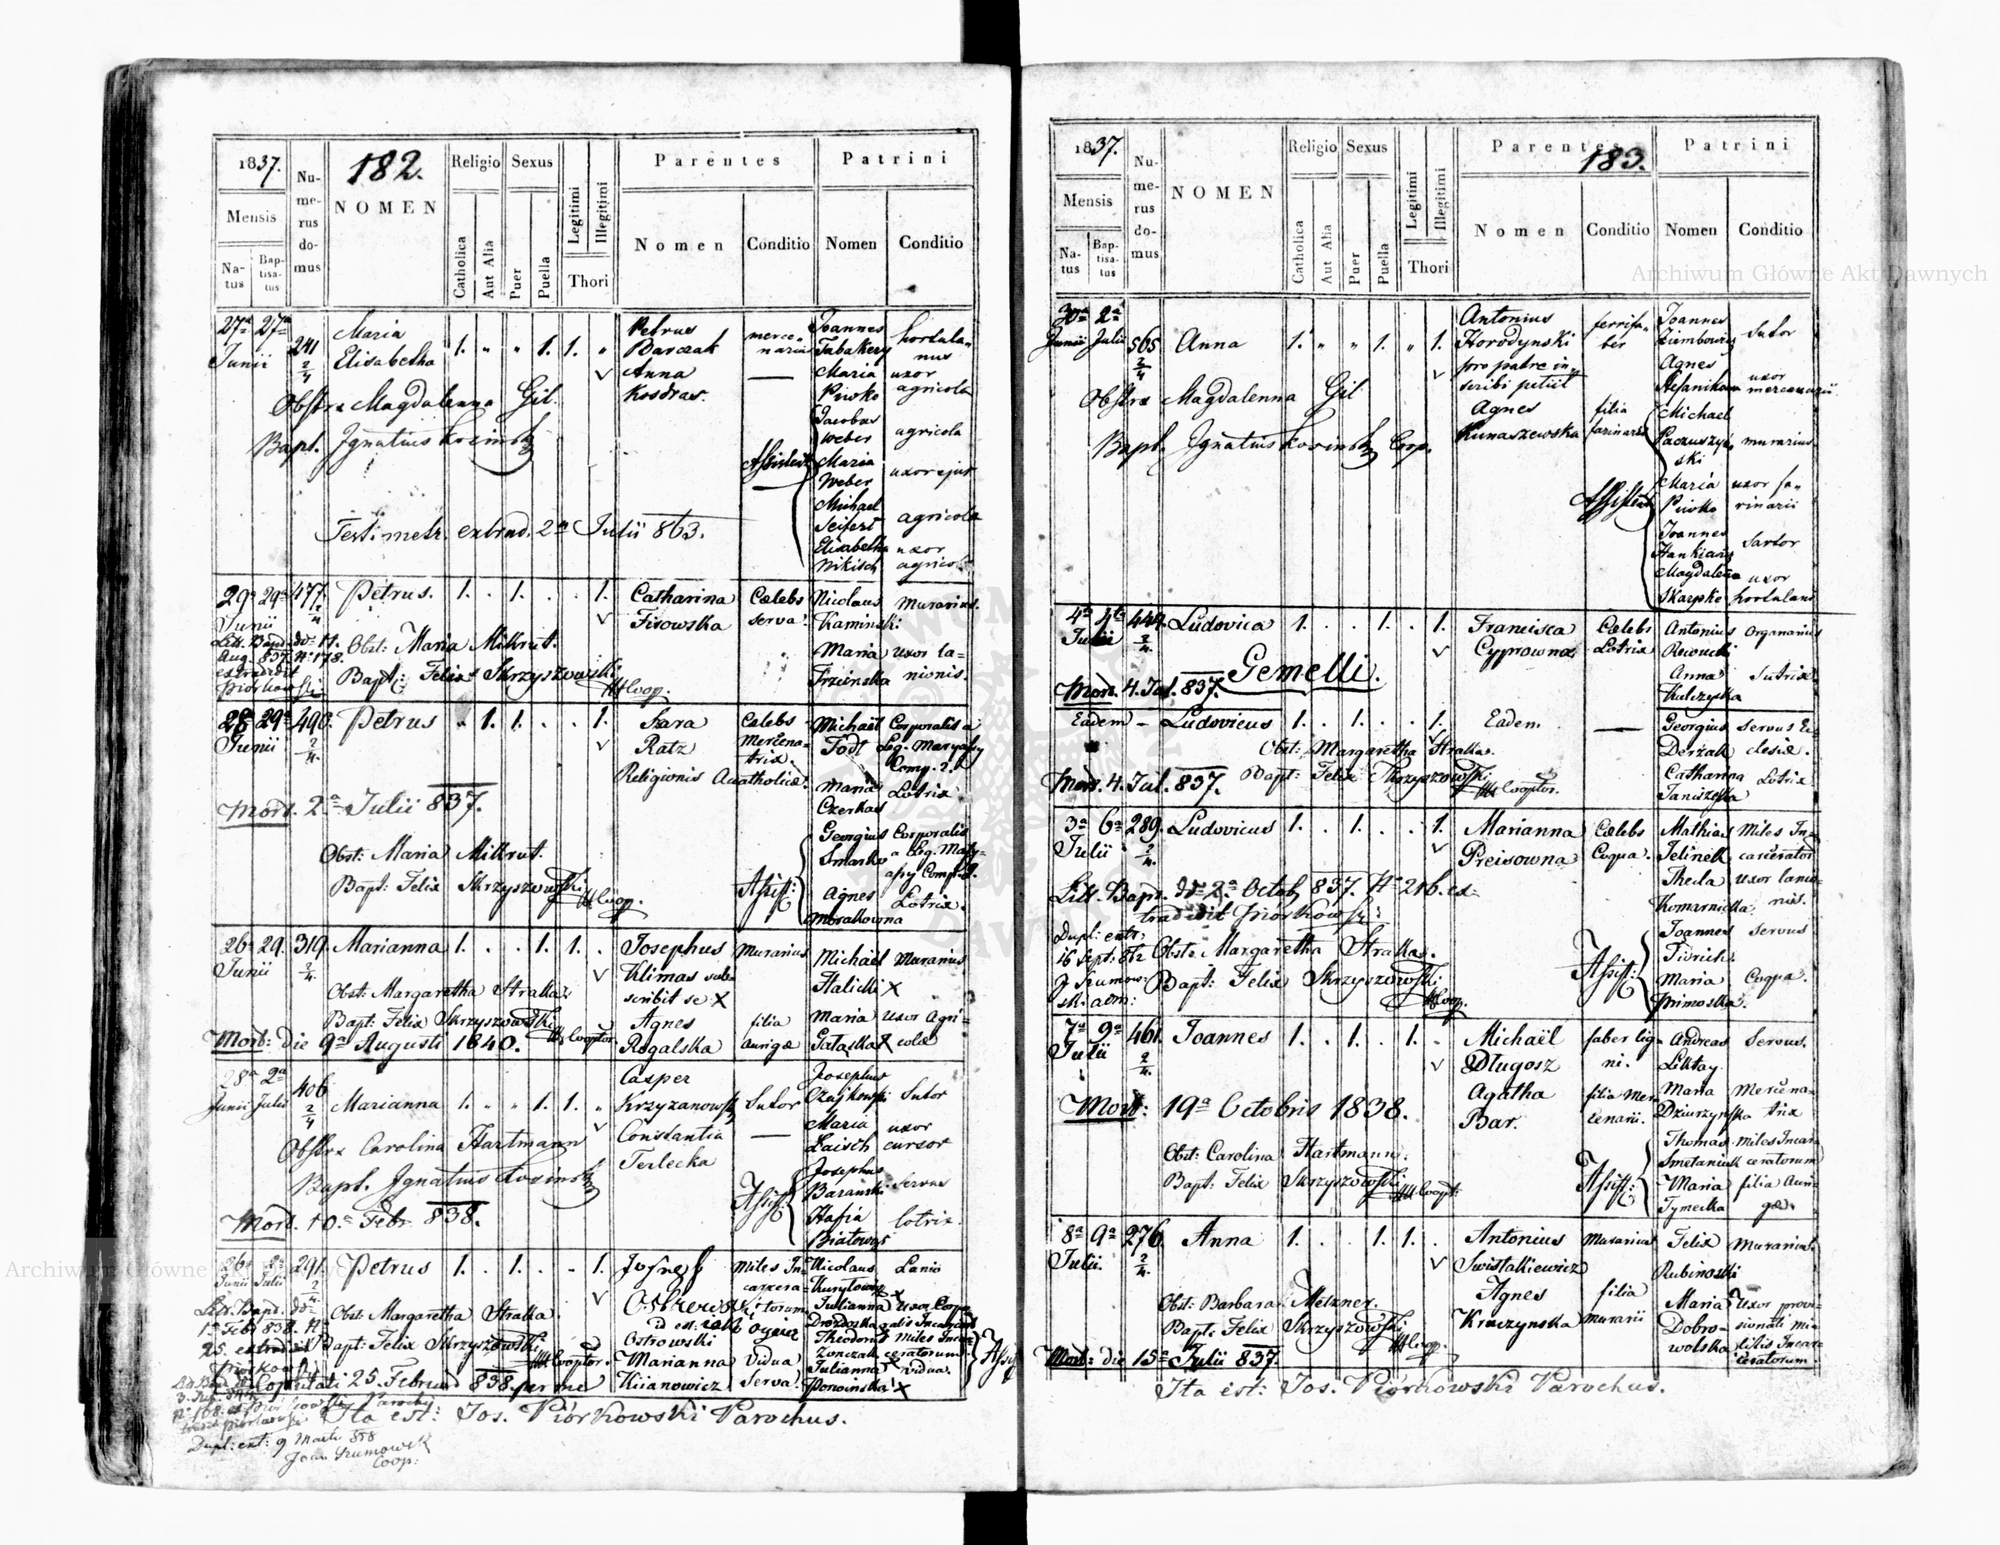 1837. 182. Religio Sexus Legitimi Illegitimi Parentes Patrini
Mensis Numerus domus NOMEN Catholica Aut Alia Puer Puella Thori Nomen Conditio Nomen Conditio
Natus Baptisatus
27a 27a Junii 241 2/4 Maria Elisabetha 1. " " 1. 1. "
Petrus Barczak mercenarius
Anna Kosdras —
Joannes Tabakery hortulanus
Maria Piwko uxor agricola
Obstrx Magdalenna Gil.
Bapt. Ignatius Kosinski
Assistent
Jacobus Weber agricola
Maria Weber uxor ejus
Michael Seifert agricola
Elisabetha Nikisch uxor agricol
Testim: metr. extrad. 2a Julii 863.
29a 29a Junii 477. 2/4 Petrus. 1. . 1. . . 1.
Catharina Fisowska Cælebs serva.
Nicolaus Kaminski Murarius.
Maria Trzcinska uxor lanionis.
Litt. Bapt. dto 17.
Aug. 837. N. 178.
extradidit
Piórkowski
Obst: Maria Mikrut.
Bapt: Felix Skrzyszowski Coop.
28 29a Junii 490. 2/4 Petrus " 1. 1. . . 1.
Sara Ratz Cælebs Mercenatrix.
Religionis Acatholicæ.
Michaël Todt Corporalis a Leg. Maryassy Comp. 2.
Maria Czerkas Lotrix
Mort. 2a Julii 837.
Obst: Maria Mikrut.
Bapt: Felix Skrzyszowski Coop.
Assist:
Georgius Smarko Corporalis a Leg. Maryassy Comp. 2.
Agnes Morakowna Lotrix.
26 29. Junii 319. 2/4 Marianna 1. . . 1. 1. .
Josephus Klimas subscribit se X Murarius
Agnes Rogalska filia aurigæ
Michaël Halicki X Murarius
Maria Gałąska X uxor Agricolæ
Obst: Margaretha Stralka.
Bapt: Felix Skrzyszowski Cooptor.
Mort: die 9a Augusti 1840.
28a 2a Junii Julii 406 2/4 Marianna 1. " " 1. 1. "
Casper Krzyzanowski Sutor
Constantia Terlecka —
Josephus Czajkowski Sutor
Maria Laisch uxor cursor
Obstrx Carolina Hartmann
Bapt. Ignatius Kosinski
Assist:
Josephus Baranski Servus
Hafia Białowąs lotrix.
Mort. 10a Febr. 838.
26a 8a Junii Julii 291. 2/4 Petrus 1. . 1. . . 1.
Joseph Ostrowski Miles Incarceratorum
id est:
Ostrowski
Marianna Kiianowicz Vidua Serva.
Nicolaus Kurytowicz X Lanio
Julianna Drozdoska uxor Corporalis Incarcerat
Theodorus Zonczak Miles Incarceratorum
Julianna Porwinska X vidua.
Assist
Litt. Bapt. dto
1a Febr 838. N.
25. extradidit
Piórkowski
Obst: Margaretha Stralka.
Bapt: Felix Skrzyszowski Cooptor.
Copulati 25. Februarii 838. per me
Parochus
Ita est: Jos. Piórkowski Parochus.
Dupl: ext: 9 Martii 858
Joan Szumowsk
Coop:
1837. 183. Religio Sexus Legitimi Illegitimi Parentes Patrini
Mensis Numerus domus NOMEN Catholica Aut Alia Puer Puella Thori Nomen Conditio Nomen Conditio
Natus Baptisatus
30a 2a Junii Julii 565 2/4 Anna 1. " " 1. " 1.
Antonius Horodynski ferrifaber
pro patre inscribi petiit
Agnes Kunaszewska filia farinarii
Joannes Ziembowicz Sutor
Agnes Stefanikowa uxor mercenarii
Obstrx Magdalenna Gil
Bapt. Ignatius Kosinski Coop.
Assistent
Michael Paczuszynski murarius
Maria Piwko uxor farinarii
Joannes Hankiewicz Sartor
Magdalena Skarpko uxor hortulani
4a 4ta Julii 444. 2/4 Ludovica 1. . . 1. . 1.
Francisca Cyprowna Cælebs Lotrix
Antonius Rewucki Organarius
Anna Kulczycka Sutrix
Gemelli.
Mort. 4. Jul. 837.
Eadem – Ludovicus 1. . 1. . . 1.
Eadem. —
Georgius Derżak Servus Ecclesiæ.
Catharina Janiszeska Lotrix
Obst: Margaretha Stralka.
Mort. 4. Jul. 837. Bapt: Felix Skrzyszowski Cooptor.
3a 6a Julii 289. 2/4 Ludovicus 1. . 1. . . 1.
Marianna Preisowna Cælebs Coqua.
Mathias Jelinek Miles Incarcerator
Thecla Komarnicka uxor lanionis.
Litt. Bapt. dto 2a Octob 837. N. 216. extradidit Piórkowski
Dupl: extr:
16 Sept: 862
J Szumowsk. adm:
Obst: Margaretha Stralka.
Bapt: Felix Skrzyszowski Coop.
Assist:
Joannes Tiurich servus
Maria Primoska. Coqua.
7a 9a Julii 461. 2/4 Joannes 1. . 1. . 1. .
Michaël Długosz faber ligni.
Agatha Bar. filia Mercenarii.
Andreas Lektay Servus.
Maria Dziurzynska Mercenatrix
Mort: 19a Octobris 1838.
Obst: Carolina Hartmann.
Bapt: Felix Skrzyszowski Coopt:
Assist:
Thomas Smetaniuk Miles Incarceratorum
Maria Tymecka filia Aurigæ.
8a 9a Julii. 276. 2/4 Anna 1. . . 1. 1. .
Antonius Swistalkiewicz Murarius
Agnes Kraczynska filia murarii
Felix Rubinoski Murarius.
Maria Dobrowolska Uxor provisionati militis Incarceratorum
Obst: Barbara Metzner.
Bapt: Felix Skrzyszowski Coop.
Mort: die 15a Julii 837.
Ita est: Jos. Piórkowski Parochus.
Archiwum Główne Akt Dawnych
Archiwum Główne Akt Dawnych